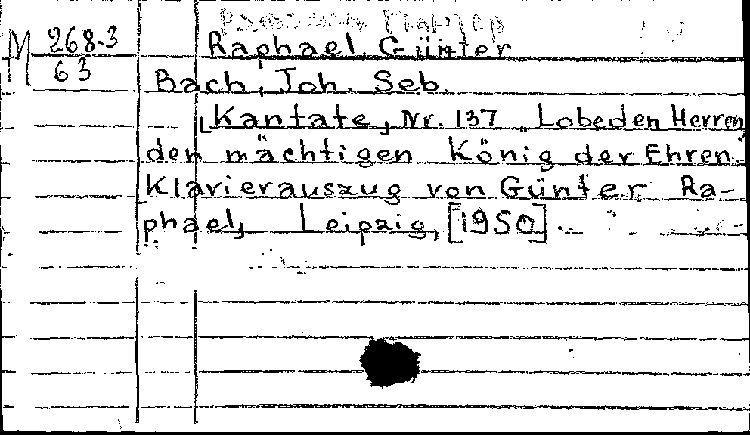 M 268-3
63
Raphael, Günter
Bach, Joh. Seb.
[Kantate, Nr. 137 „Lobe den Herren
den mächtigen König der Ehren."
Klavierauszug von Günter Ra-
phael, Leipzig, [1950].